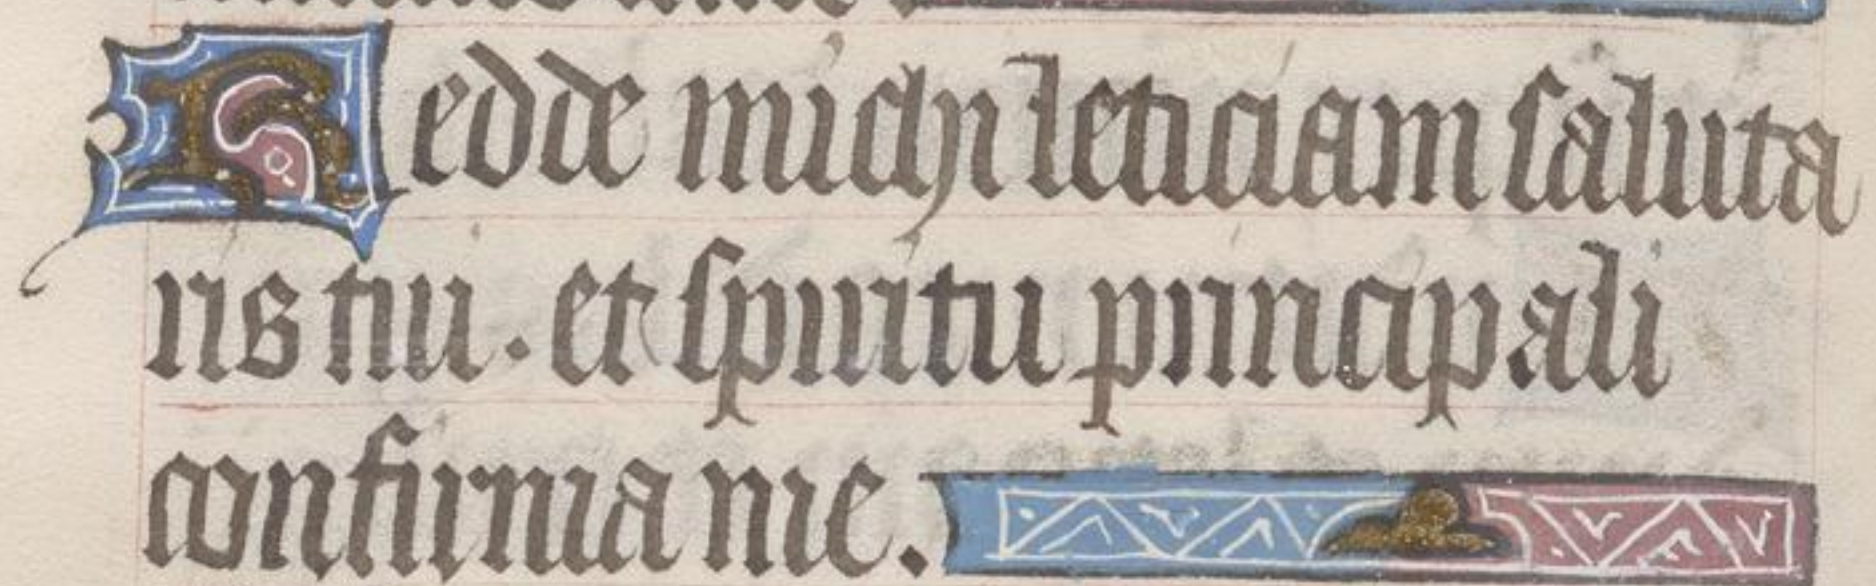 Redde michi leticiam saluta
ris tui. et spiritu principali
confirma me.